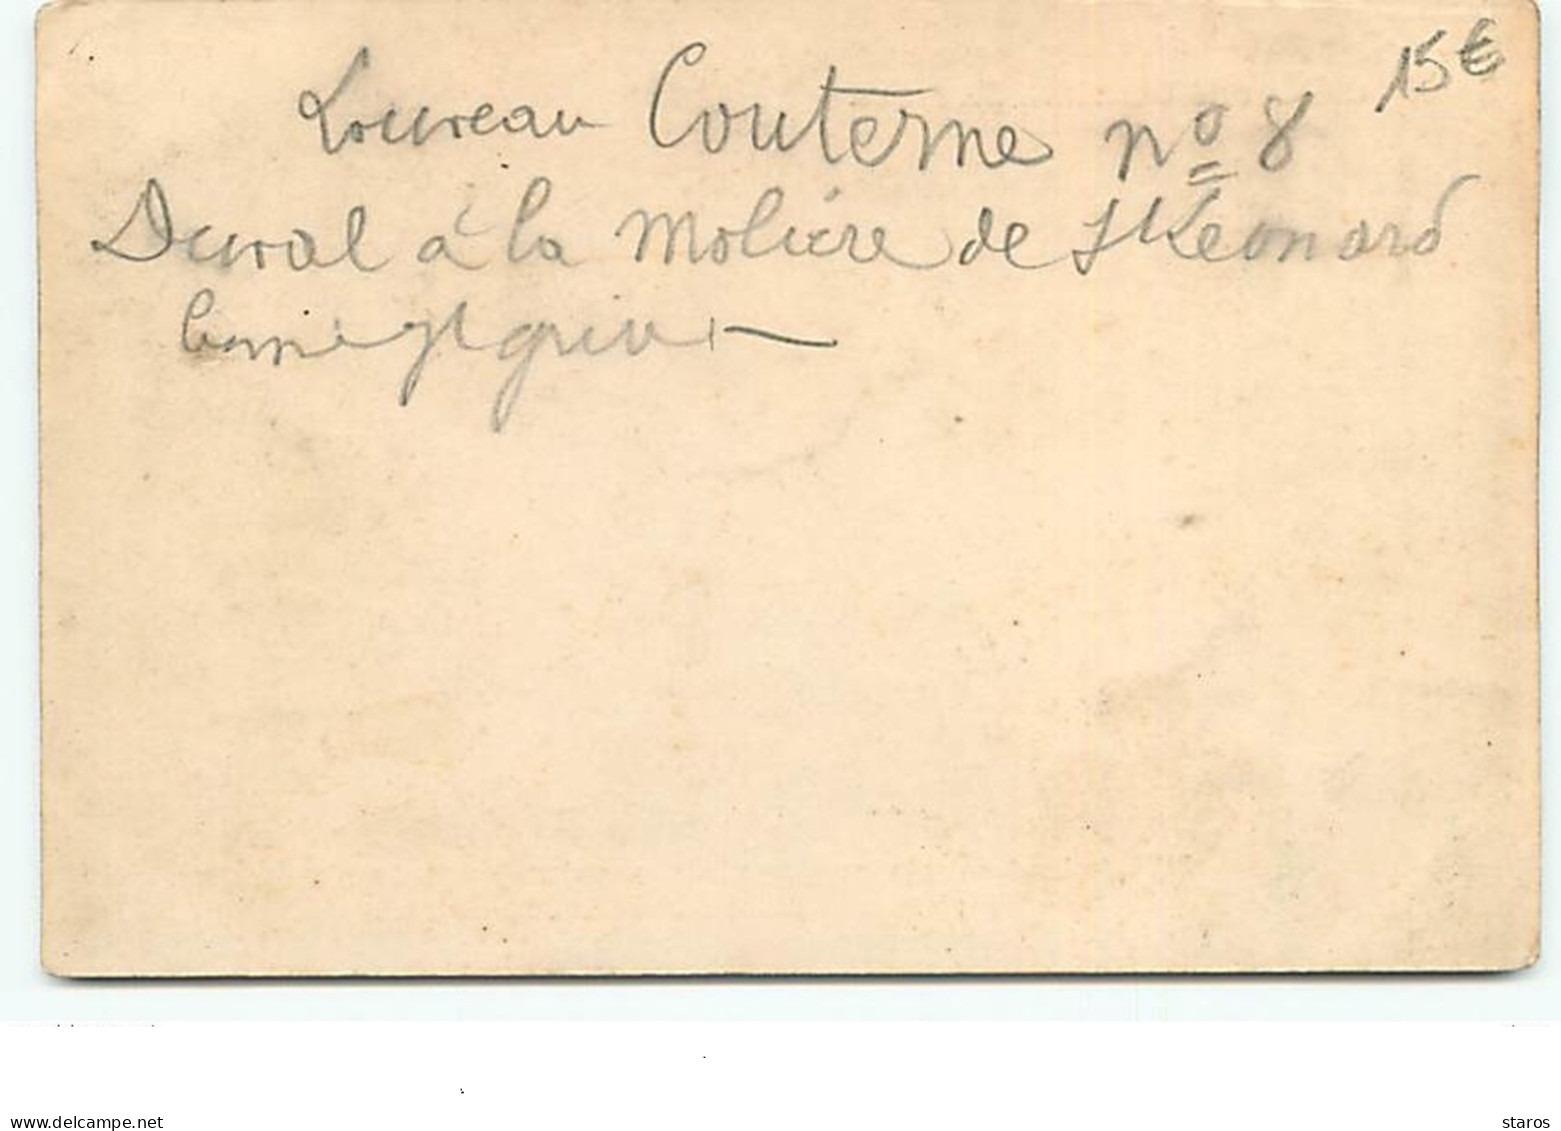 15€
Loureau Couterne nº 8
Duval à la Molière de St Léonard
delcampe.net
staros